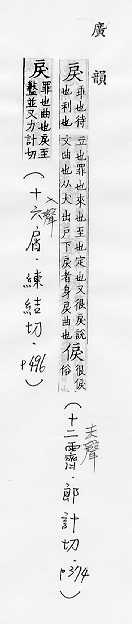 廣韻
戾 乖也待
立也罪也來也至也定也又很戾說
文曲也从犬出戶下戾者身戾曲也俗 俍 很俍
(十二霽．郎計切．p374)
去聲
戾 罪也曲也戾至
盭並又力計切
(十六屑．練結切．p496)
入聲